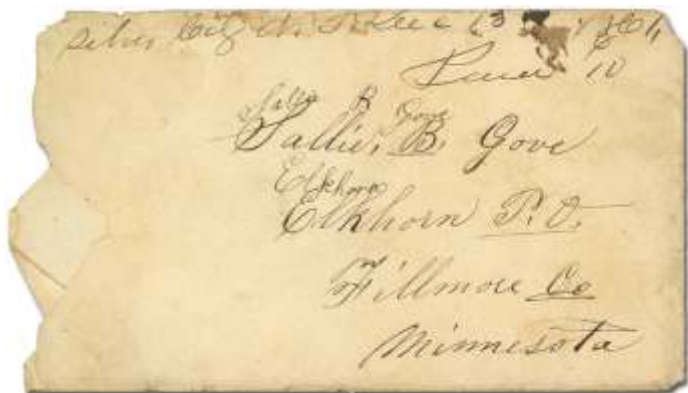 Silver City N. T. Dec 13
10
Sallie B Gove
Sallie, B. Gove
Elkhorn
Elkhorn P. O.
Fillmore Co
Minnesota